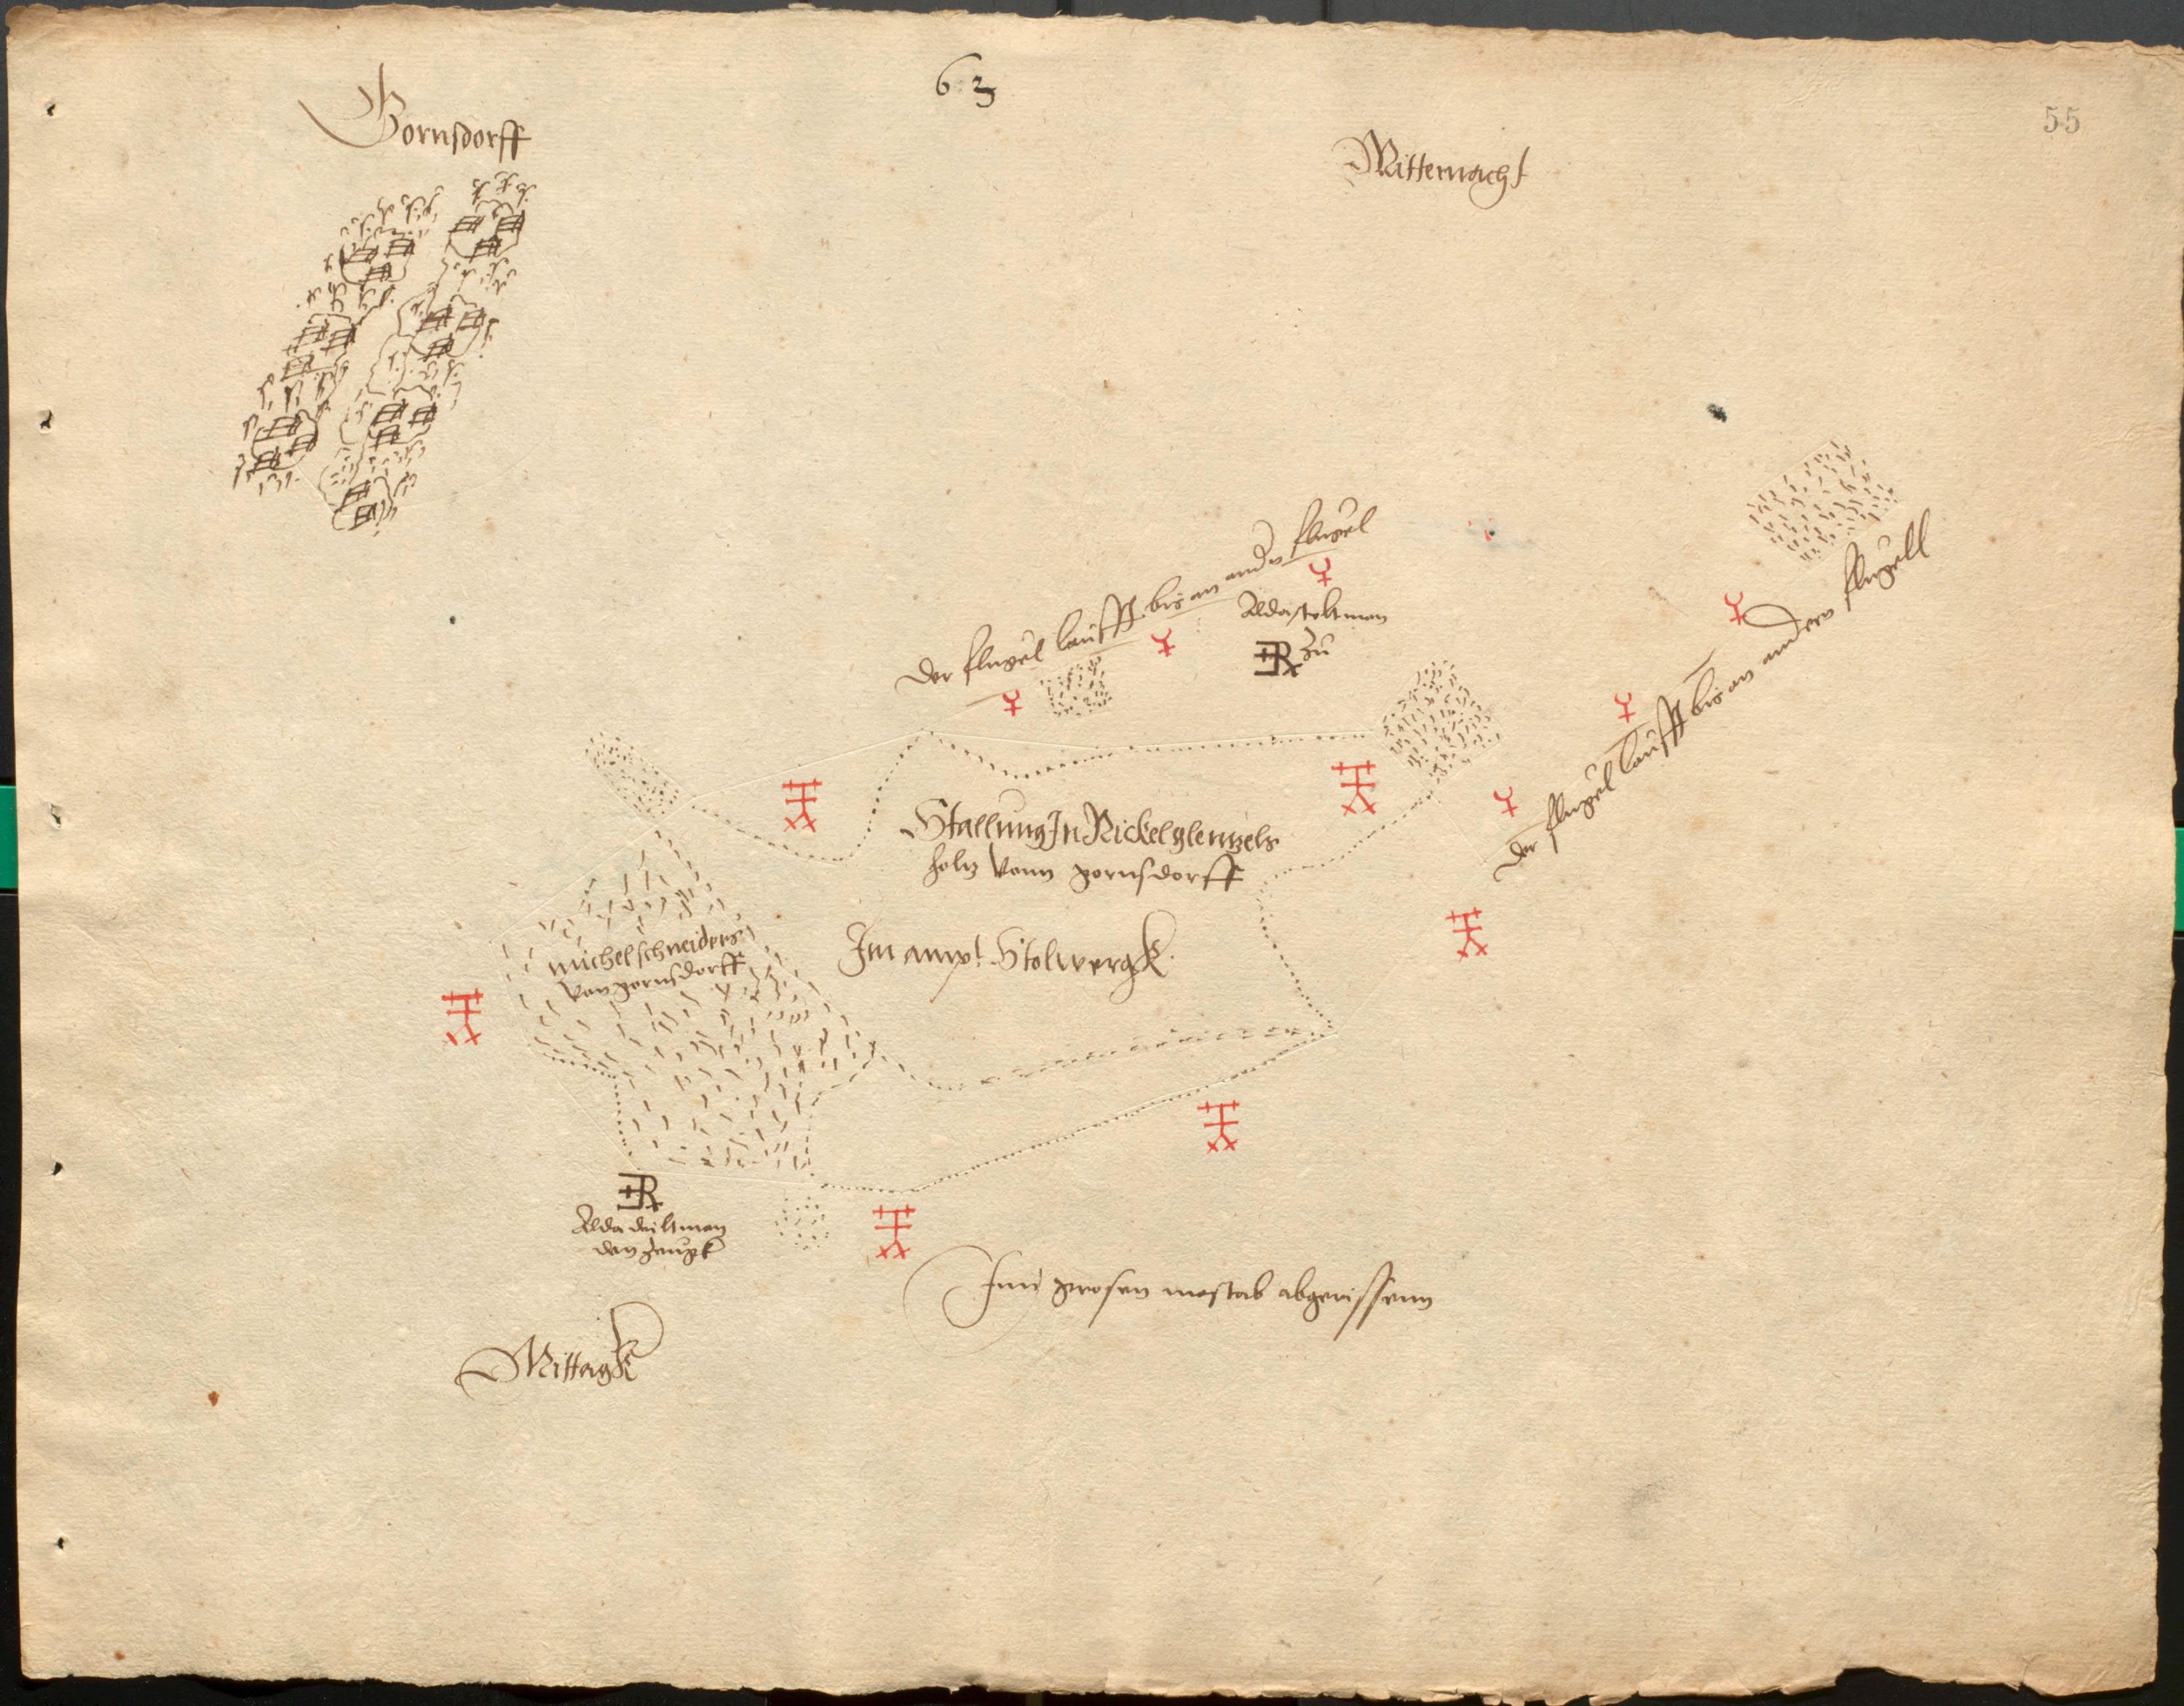 63
55
Gornsdorff
Mitternacht
Der flugel laufft bis an ander flugel
Alda stelt man
zu
Der flugel laufft bis an andern flugell
Stallung In Nickel glentzels
holtz Vonn gornsdorff
Im ampt Stolwergk
michel schneiders
Von gornsdorff
Alda
den zeugk
Inn grosen mastab abgerissenn
Mittagk